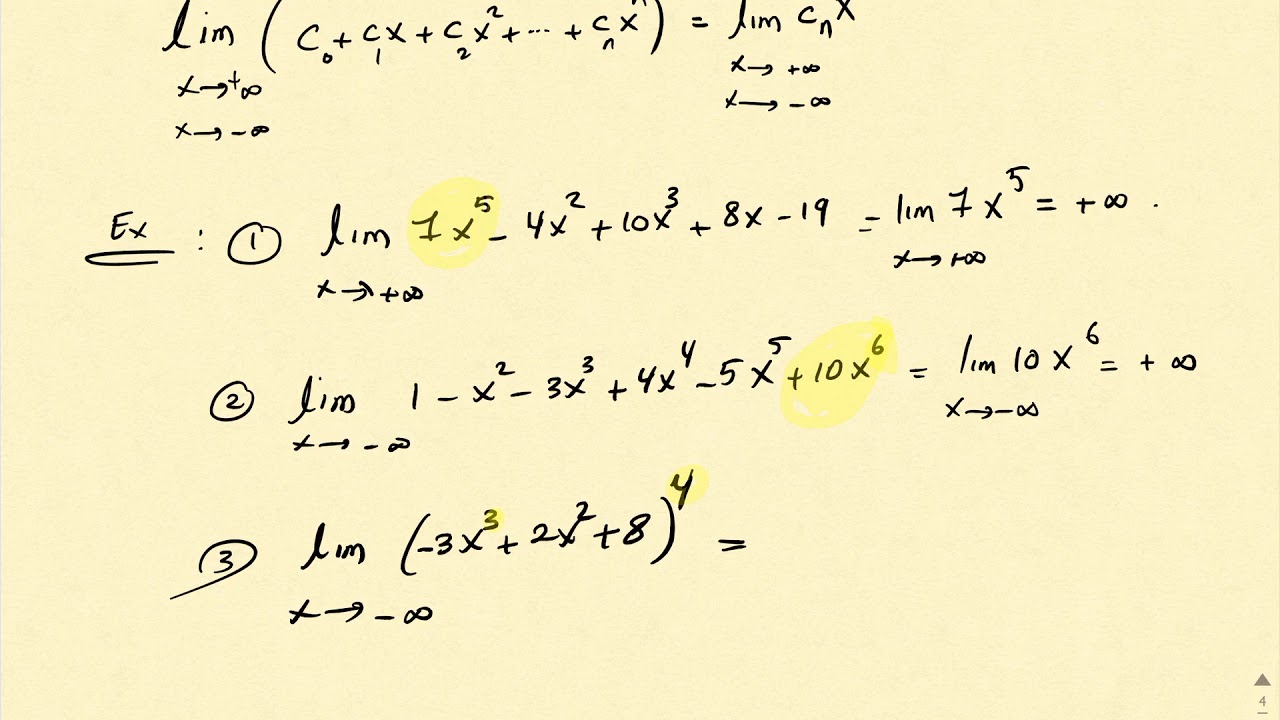 lim ( C₀ + C₁x + C₂x² + ... + Cₙxⁿ ) = lim Cₙx
x → +∞ x → +∞
x → -∞ x → -∞
Ex : ① lim 7x⁵ - 4x² + 10x³ + 8x - 19 = lim 7x⁵ = +∞ .
x → +∞ x → +∞
② lim 1 - x² - 3x³ + 4x⁴ - 5x⁵ + 10x⁶ = lim 10x⁶ = +∞
x → -∞ x → -∞
③ lim (-3x³ + 2x² + 8)⁴ =
x → -∞
4